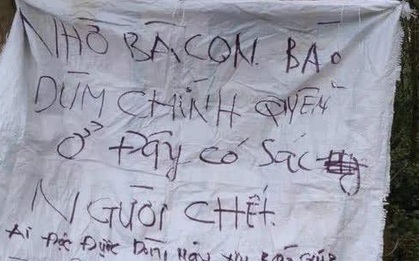 NHỜ BÀ CON BÁO
DÙM CHÍNH QUYỀN
Ở ĐÂY CÓ XÁC
NGƯỜI CHẾT
Ai Đọc Được Dòng Này Xin BÁO GIÚP